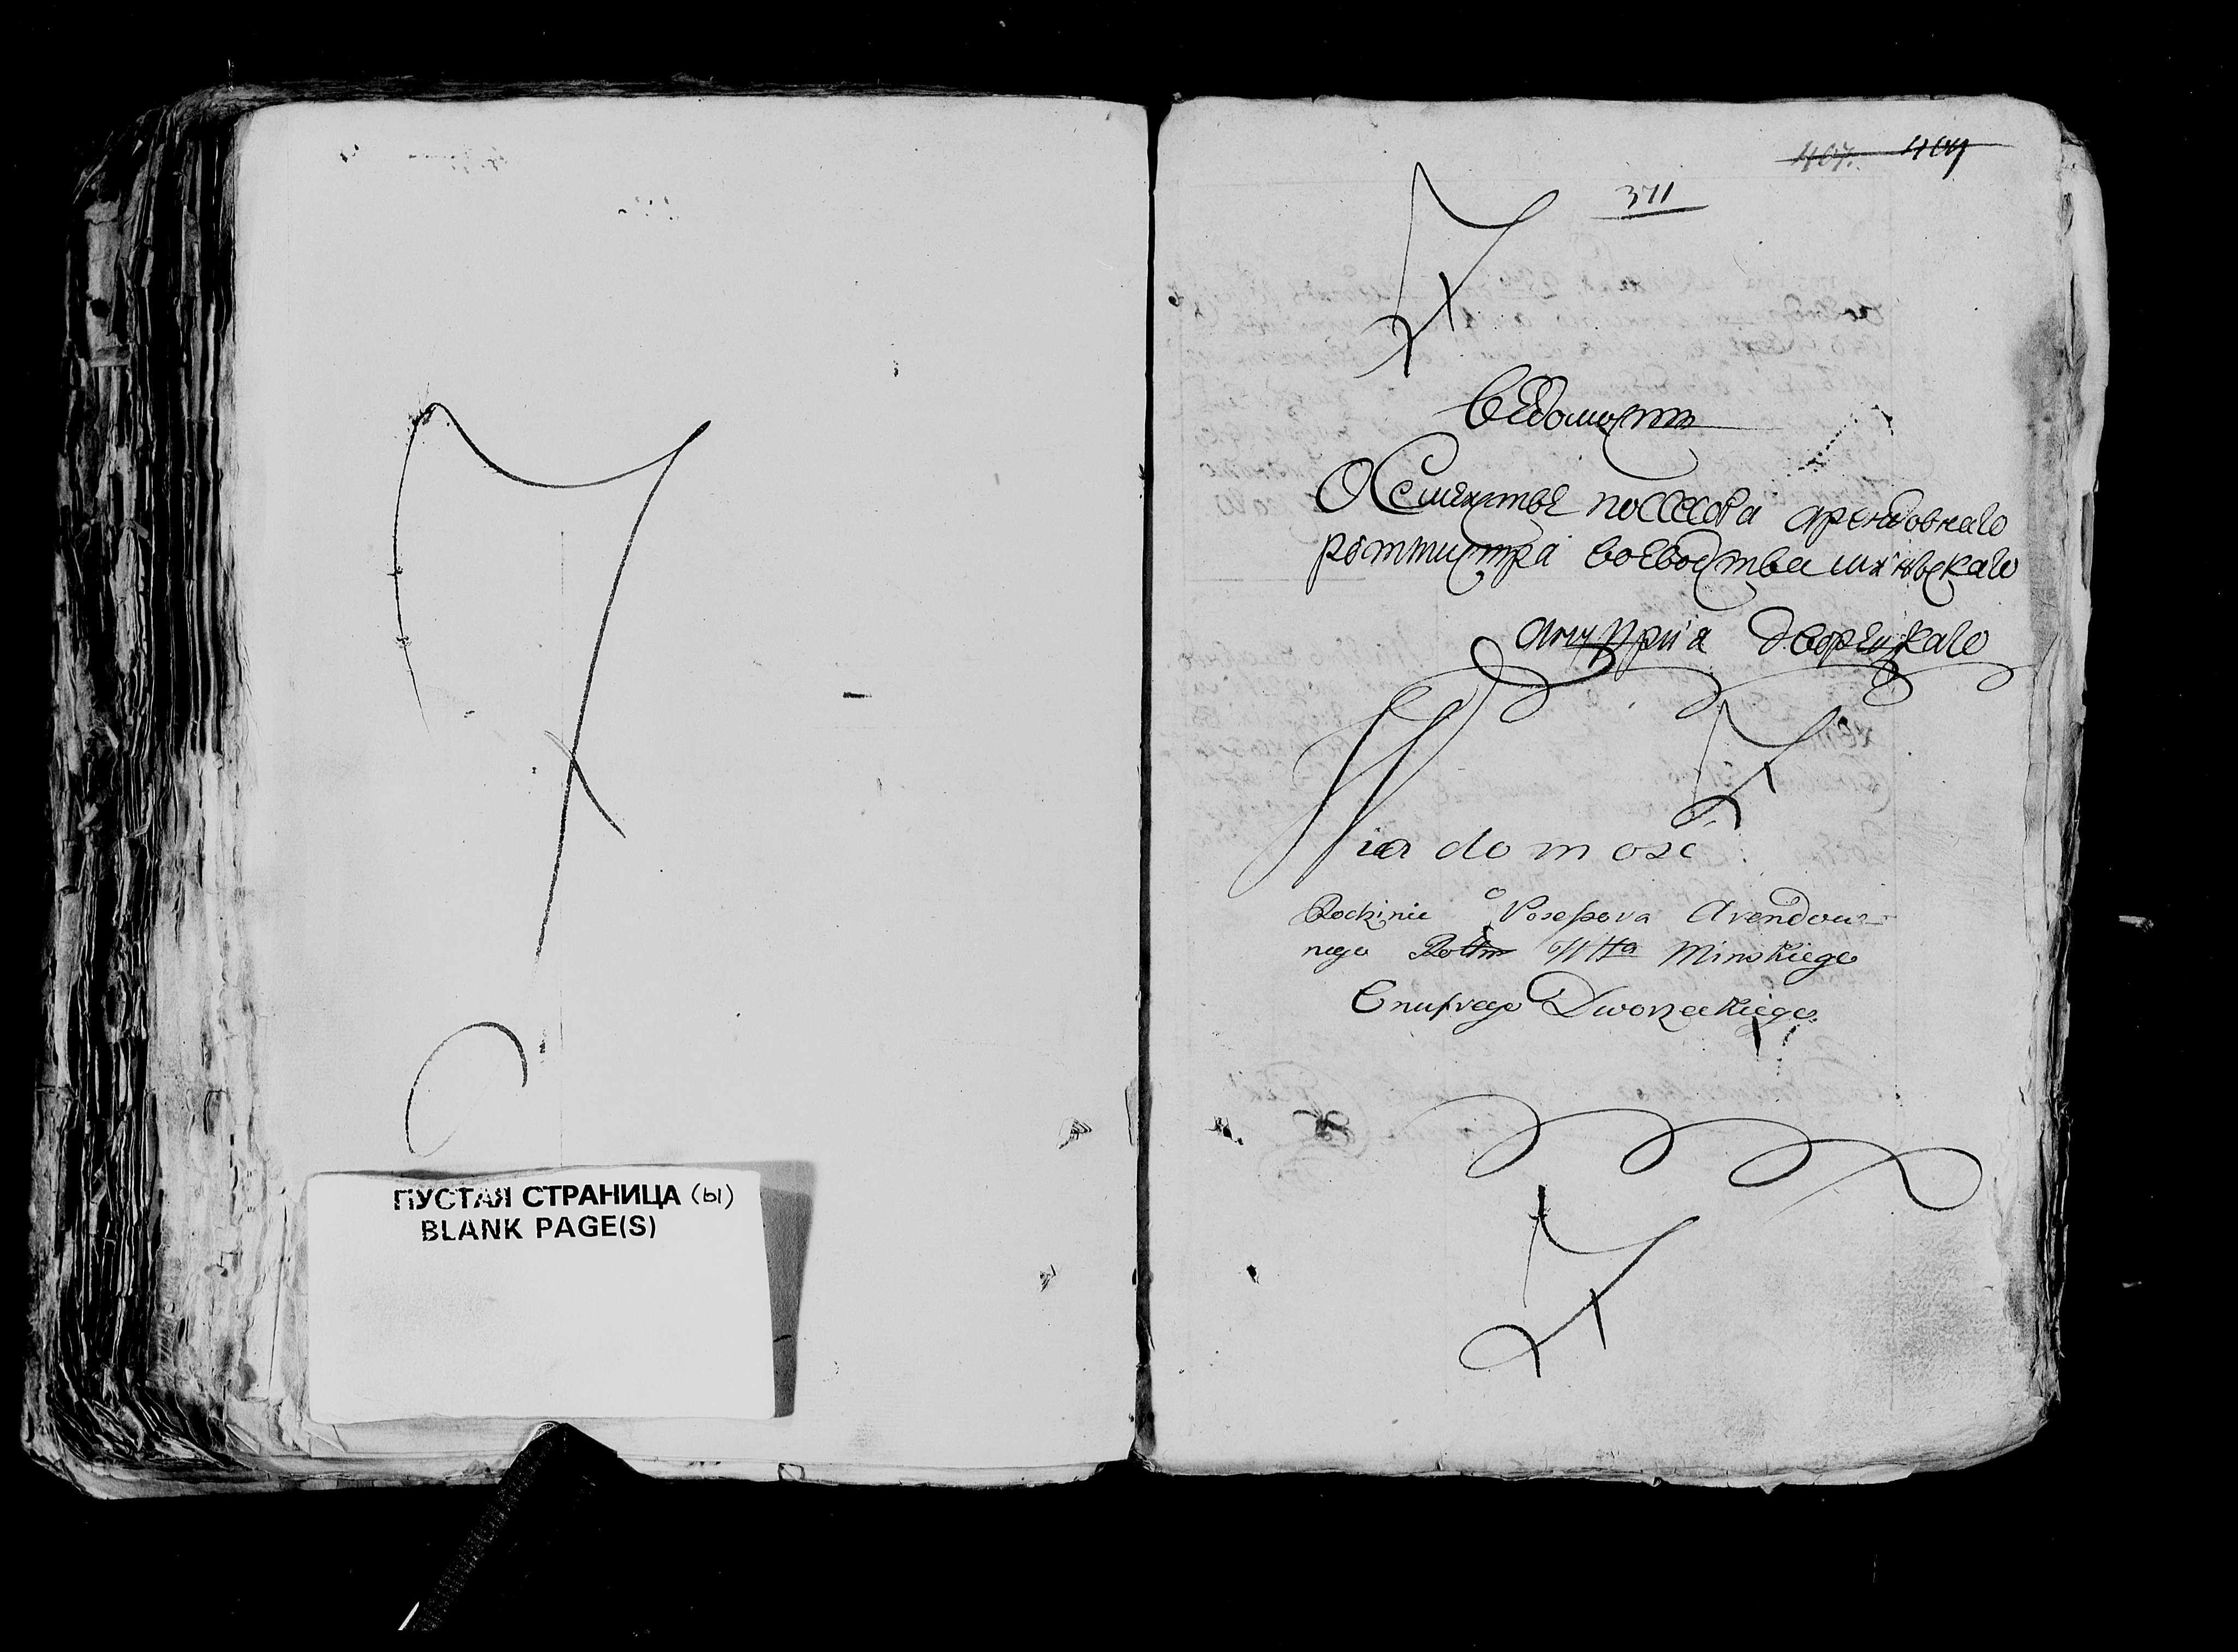 ПУСТАЯ СТРАНИЦА (ы)
BLANK PAGE(S)
407. 409
371
Ведомость
О Семействе поссесора арендовнаго
ротмистра воеводства минскаго
онуфрия дворецкаго
Wiadomosc
o
Rodzinie Posessora Arendow-
nego Rottm Wttа Minskiego
Onufrego Dworzeckiego